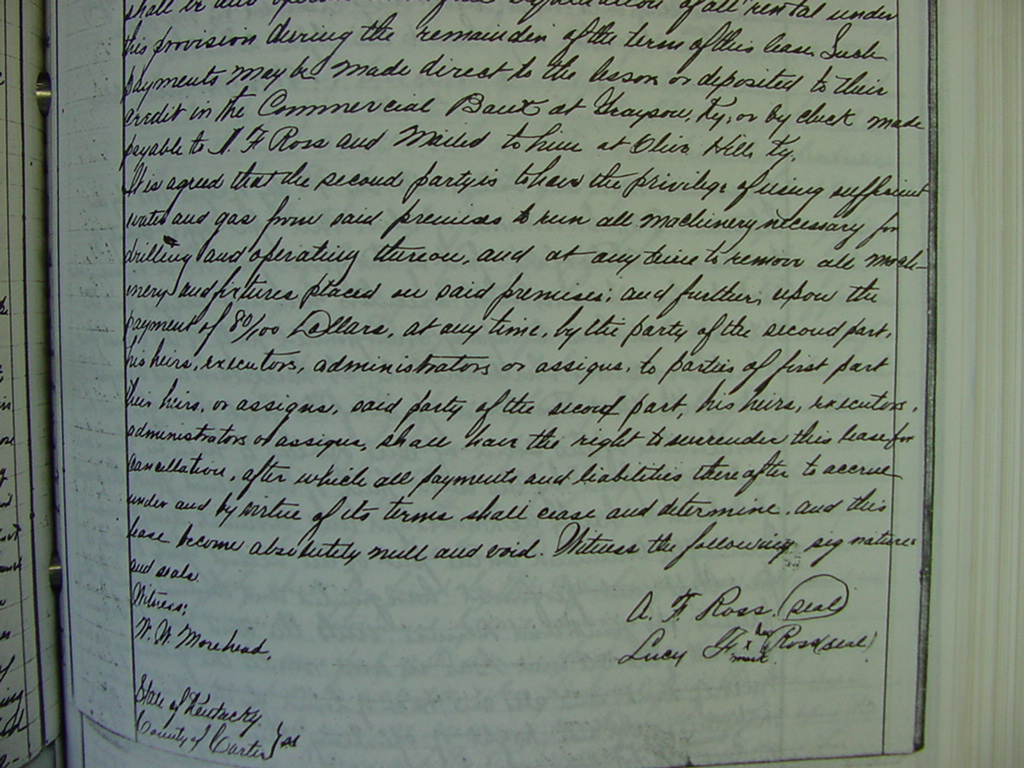 shall be and operate
of all rental under
this provision during the remainder of the term of this lease. Such
payments may be made direct to the lessor or deposited to their
credit in the Commercial Bank at Grayson, Ky, or by check made
payable to A. F. Ross and Mailed to him at Olive Hill, Ky.
It is agreed that the second party is to have the privilege of using sufficient
water and gas from said premises to run all machinery necessary for
drilling and operating thereon, and at any time to remove all mach-
inery and fixtures placed on said premises; and further, upon the
payment of 80/100 Dollars, at any time, by the party of the second part,
his heirs, executors, administrators or assigns, to parties of first part
their heirs, or assigns, said party of the second part, his heirs, executors,
administrators or assigns, shall have the right to surrender this lease for
cancellation, after which all payments and liabilities thereafter to accrue
under and by virtue of its terms shall cease and determine, and this
lease become absolutely null and void. Witness the following signatures
and seals.
Witness:
A. F. Ross (seal)
W. W. Morehead,
Lucy F. her x mark Ross (seal)
State of Kentucky
County of Carter } ss